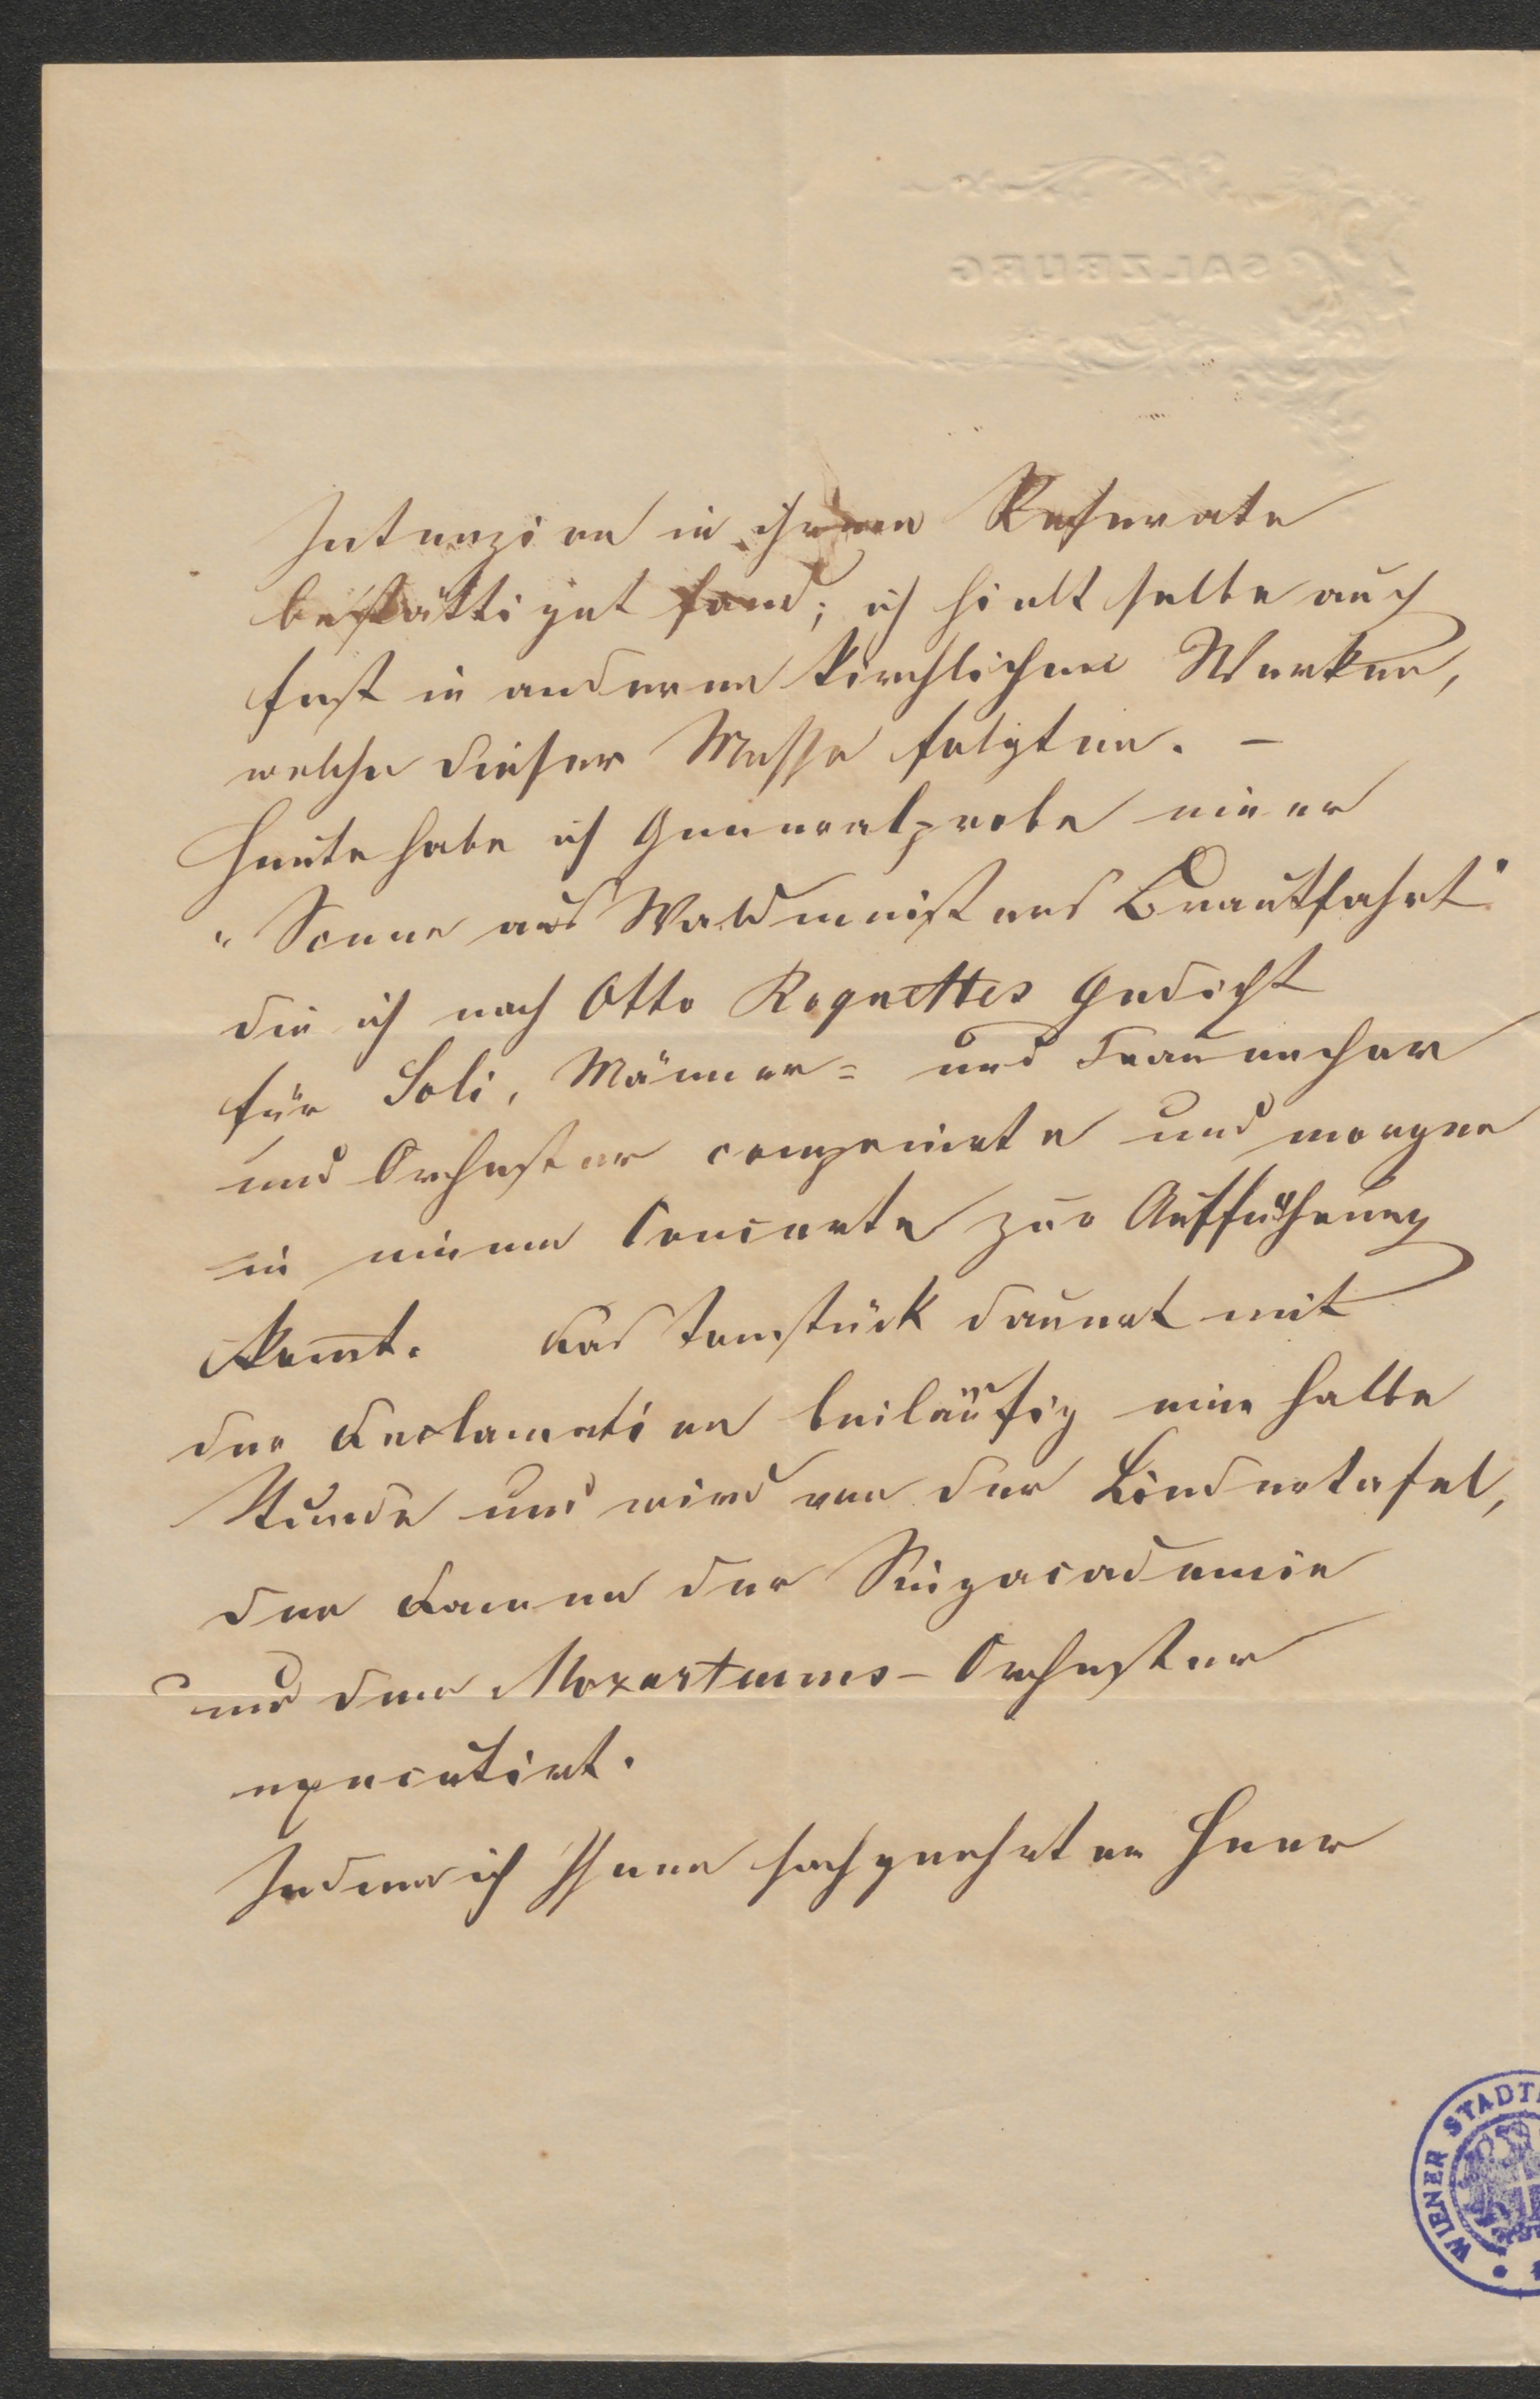 SALZBURG
Intenzion in ihrem Referate
bestättiget fand; ich hielt selbe auch
fest in anderen kirchlichen Werken,
welche dieser Messe folgten. –
Heute habe ich Generalprobe einer
"Scene aus Waldmeisters Brautfahrt"
die ich nach Otto Roquettes Gedicht
für Soli, Männer= und Frauenchor
und Orchester componirte und morgen
in einem Concerte zur Aufführung
kommt. Das Tonstück dauert mit
der Declamation beiläufig eine halbe
Stunde und wird von der Liedertafel,
den Damen der Singacademie
und dem Mozarteums-Orchester
executirt.
Indem ich Ihnen hochgeehrter Herr
WIENER STADT